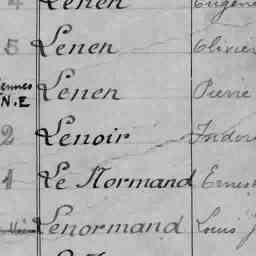 4 Lenen Eugène
5 Lenen Olivier
Rennes N.E Lenen Pierre
2 Lenoir Isidore
1 Le Normand Ernest
Lenormand Louis J